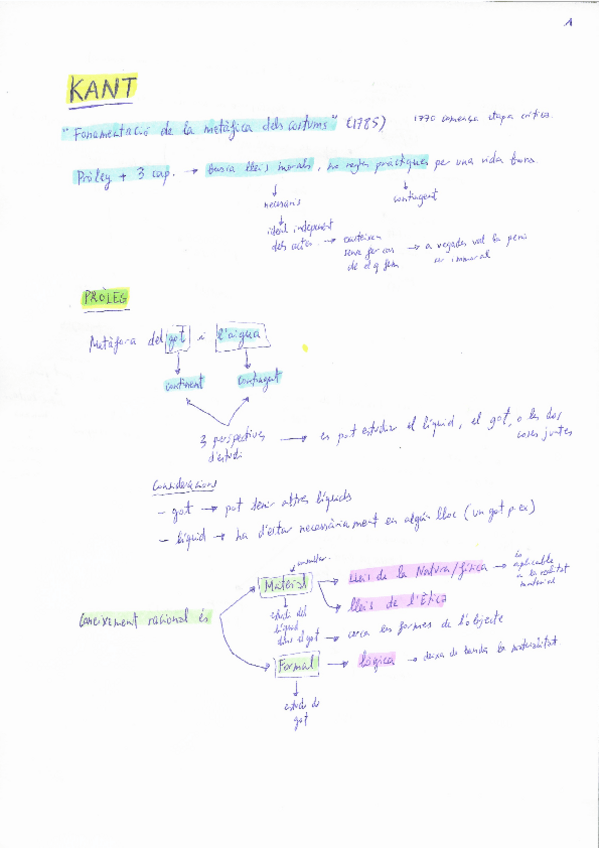 1
KANT
"Fonamentació de la metàfica dels costums" (1785) 1770 comença etapa crítica.
Pròleg + 3 cap. → busca lleis morals, no regles pràctiques per una vida bona.
necessaris
contingent
ideal independent
dels actes → 
→ a vegades val la pena
ser immoral
PRÒLEG
Metàfora del got i l'aigua
continent contingut
3 perspectives → es pot estudiar el líquid, el got, o les dos
d'estudi coses juntes
Consideracions
- got → pot tenir altres líquids
- líquid → ha d'estar necessàriament en algún lloc (un got p ex)
Material → Lleis de la Natura/física → és
aplicable
a la realitat
material
lleis de l'Ètica
Coneixement racional és
estudi del
líquid
dins el got → cerca les formes de l'objecte
Formal → lògica → deixa de banda la materialitat.
estudi de
got